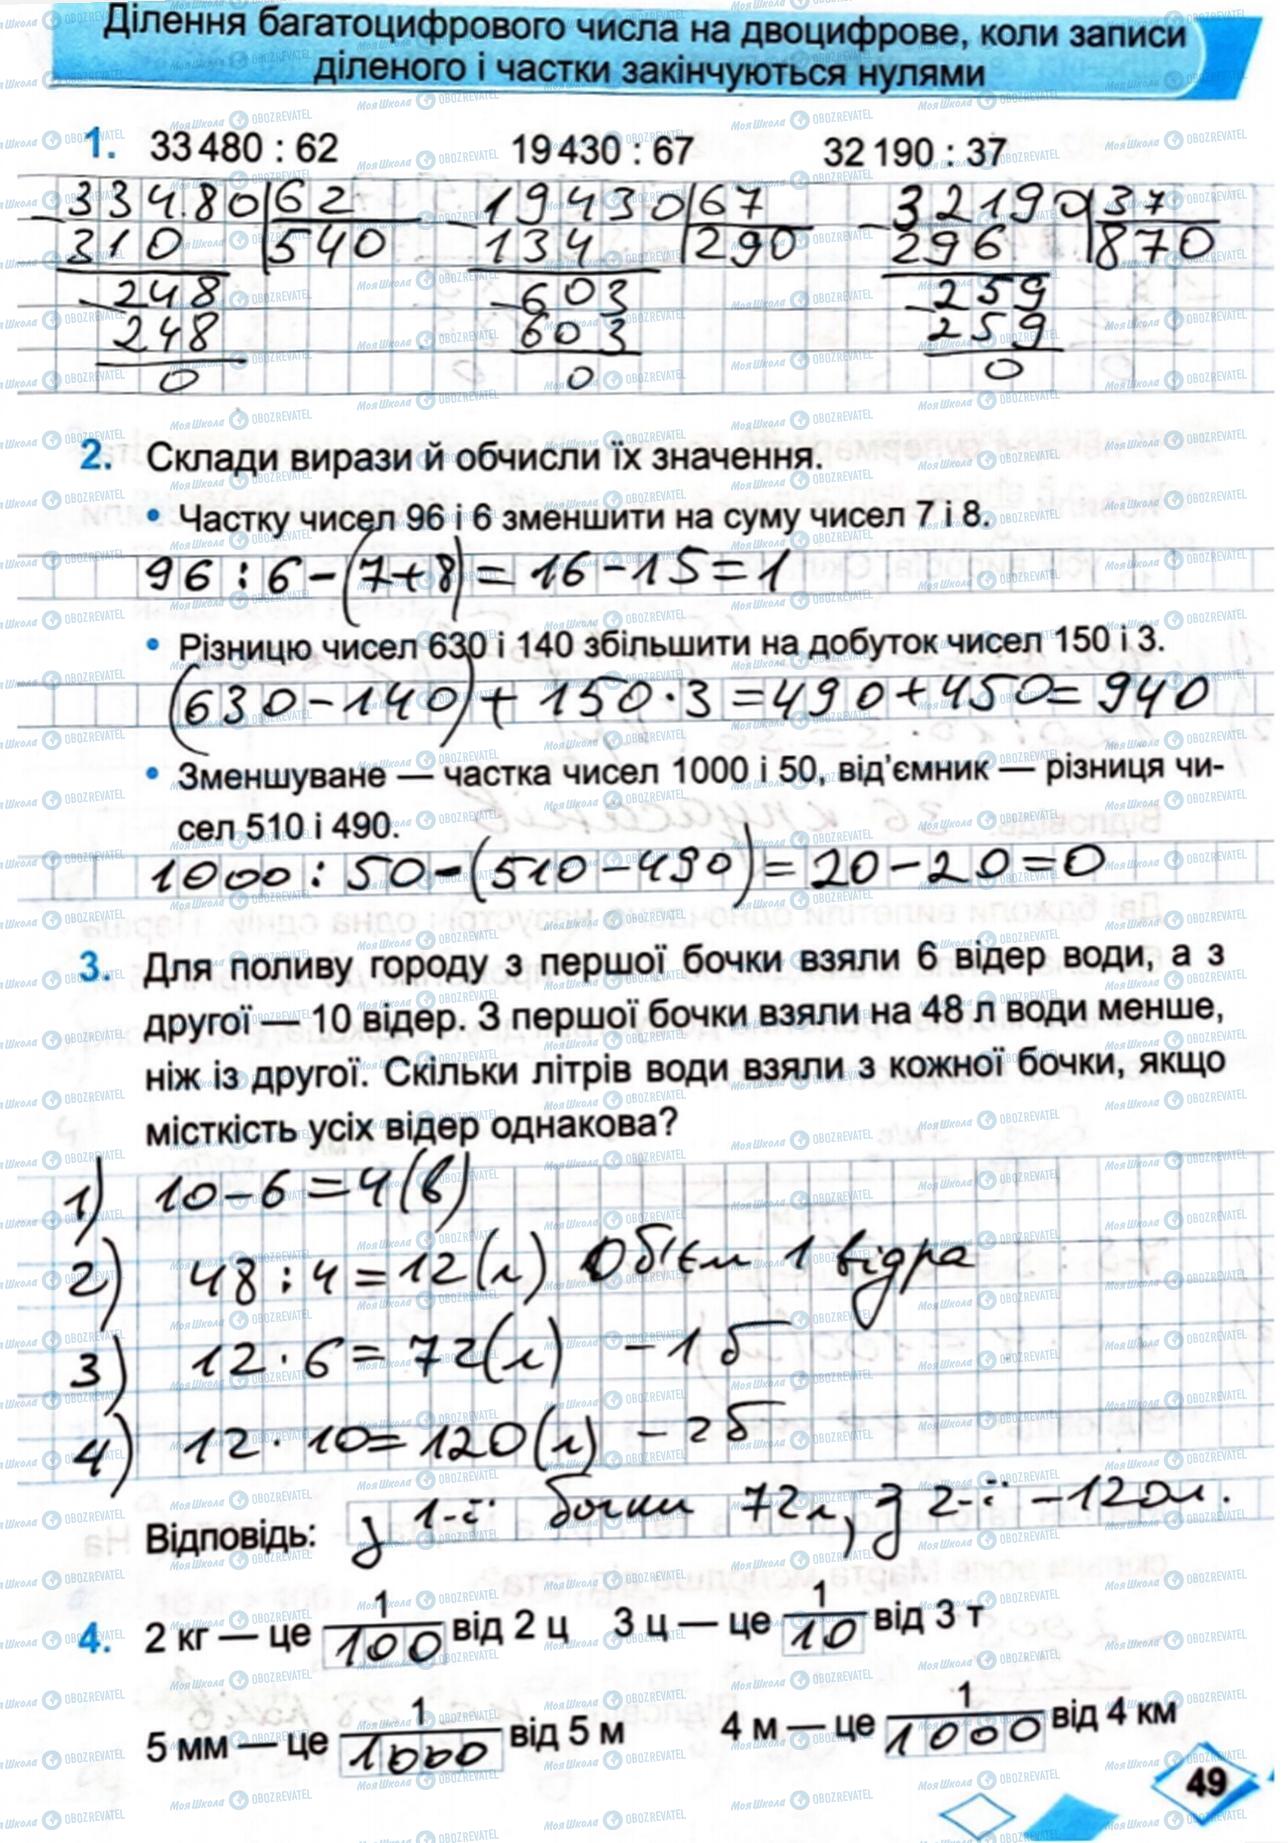 Ділення багатоцифрового числа на двоцифрове, коли записи
діленого і частки закінчуються нулями
1. 33 480 : 62 19 430 : 67 32 190 : 37
33480 62 19430 67 32190 37
310 540 134 290 296 870
248 603 259
248 603 259
0 0 0
2. Склади вирази й обчисли їх значення.
• Частку чисел 96 і 6 зменшити на суму чисел 7 і 8.
96 : 6 - (7+8) = 16 - 15 = 1
• Різницю чисел 630 і 140 збільшити на добуток чисел 150 і 3.
(630 - 140) + 150 · 3 = 490 + 450 = 940
• Зменшуване — частка чисел 1000 і 50, від'ємник — різниця чи-
сел 510 і 490.
1000 : 50 - (510 - 490) = 20 - 20 = 0
3. Для поливу городу з першої бочки взяли 6 відер води, а з
другої — 10 відер. З першої бочки взяли на 48 л води менше,
ніж із другої. Скільки літрів води взяли з кожної бочки, якщо
місткість усіх відер однакова?
1) 10 - 6 = 4 (в)
2) 48 : 4 = 12 (л) Об'єм 1 відра
3) 12 · 6 = 72 (л) - 1 б
4) 12 · 10 = 120 (л) - 2 б
Відповідь: з 1-ї бочки 72 л, з 2-ї - 120 л.
4. 2 кг — це 1/100 від 2 ц 3 ц — це 1/10 від 3 т
5 мм — це 1/1000 від 5 м 4 м — це 1/1000 від 4 км
49
МояШкола OBOZREVATEL